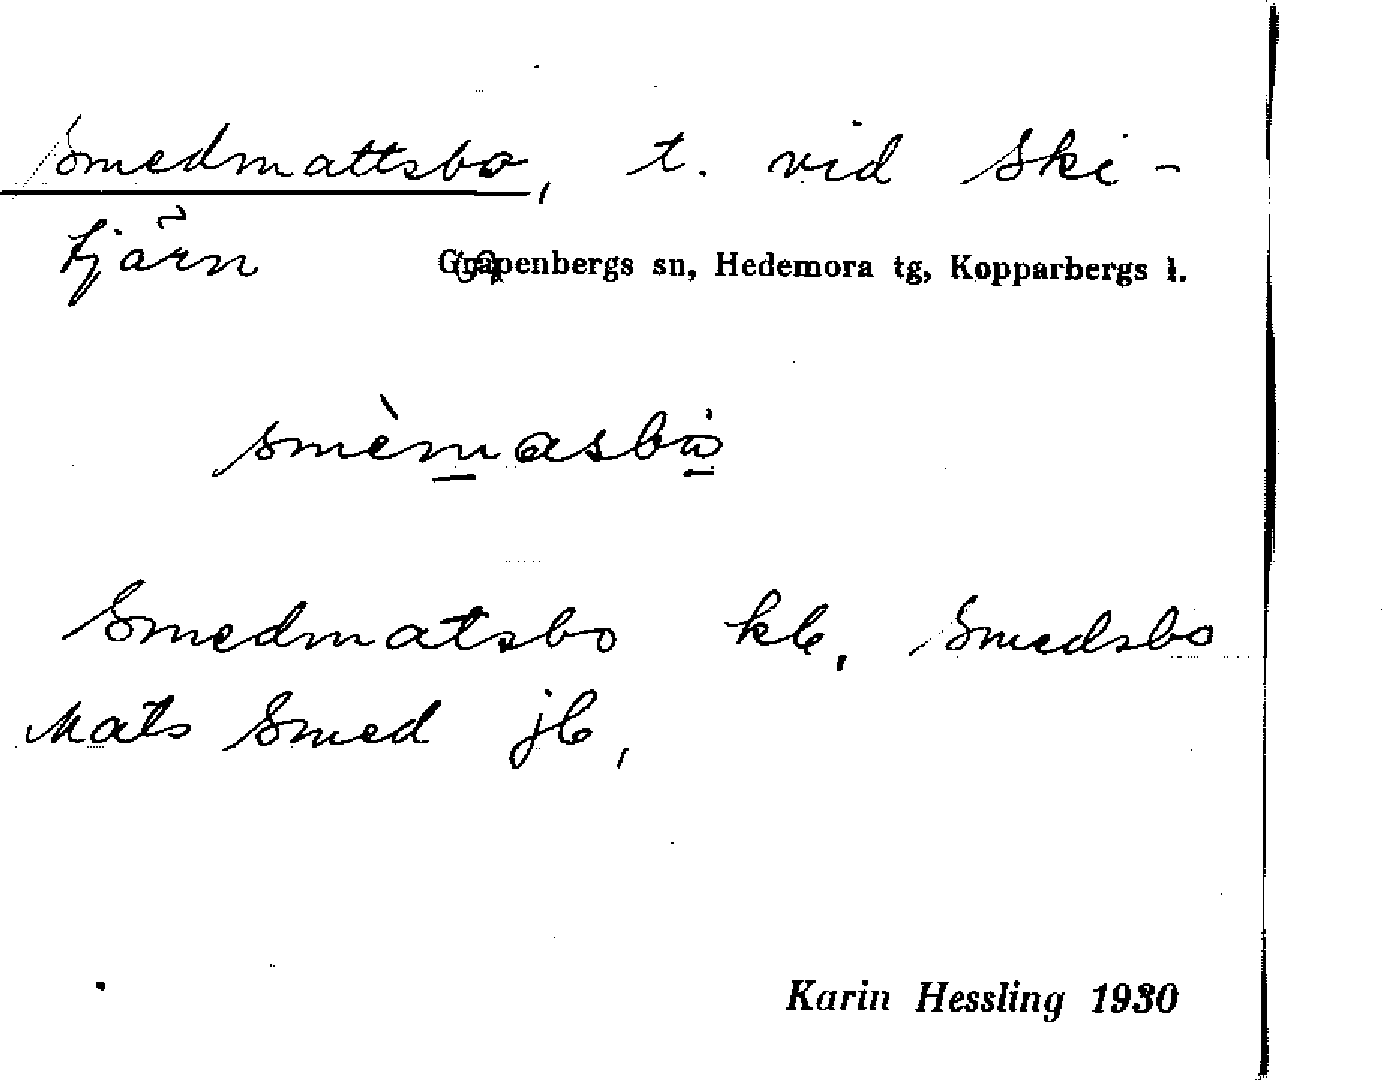 Smedmattsbo, t. vid Ski-
tjärn
Garpenbergs sn, Hedemora tg, Kopparbergs l.
smèmasbo
Smedmatsbo kb, Smedsbo
Mats Smed jb,
Karin Hessling 1930